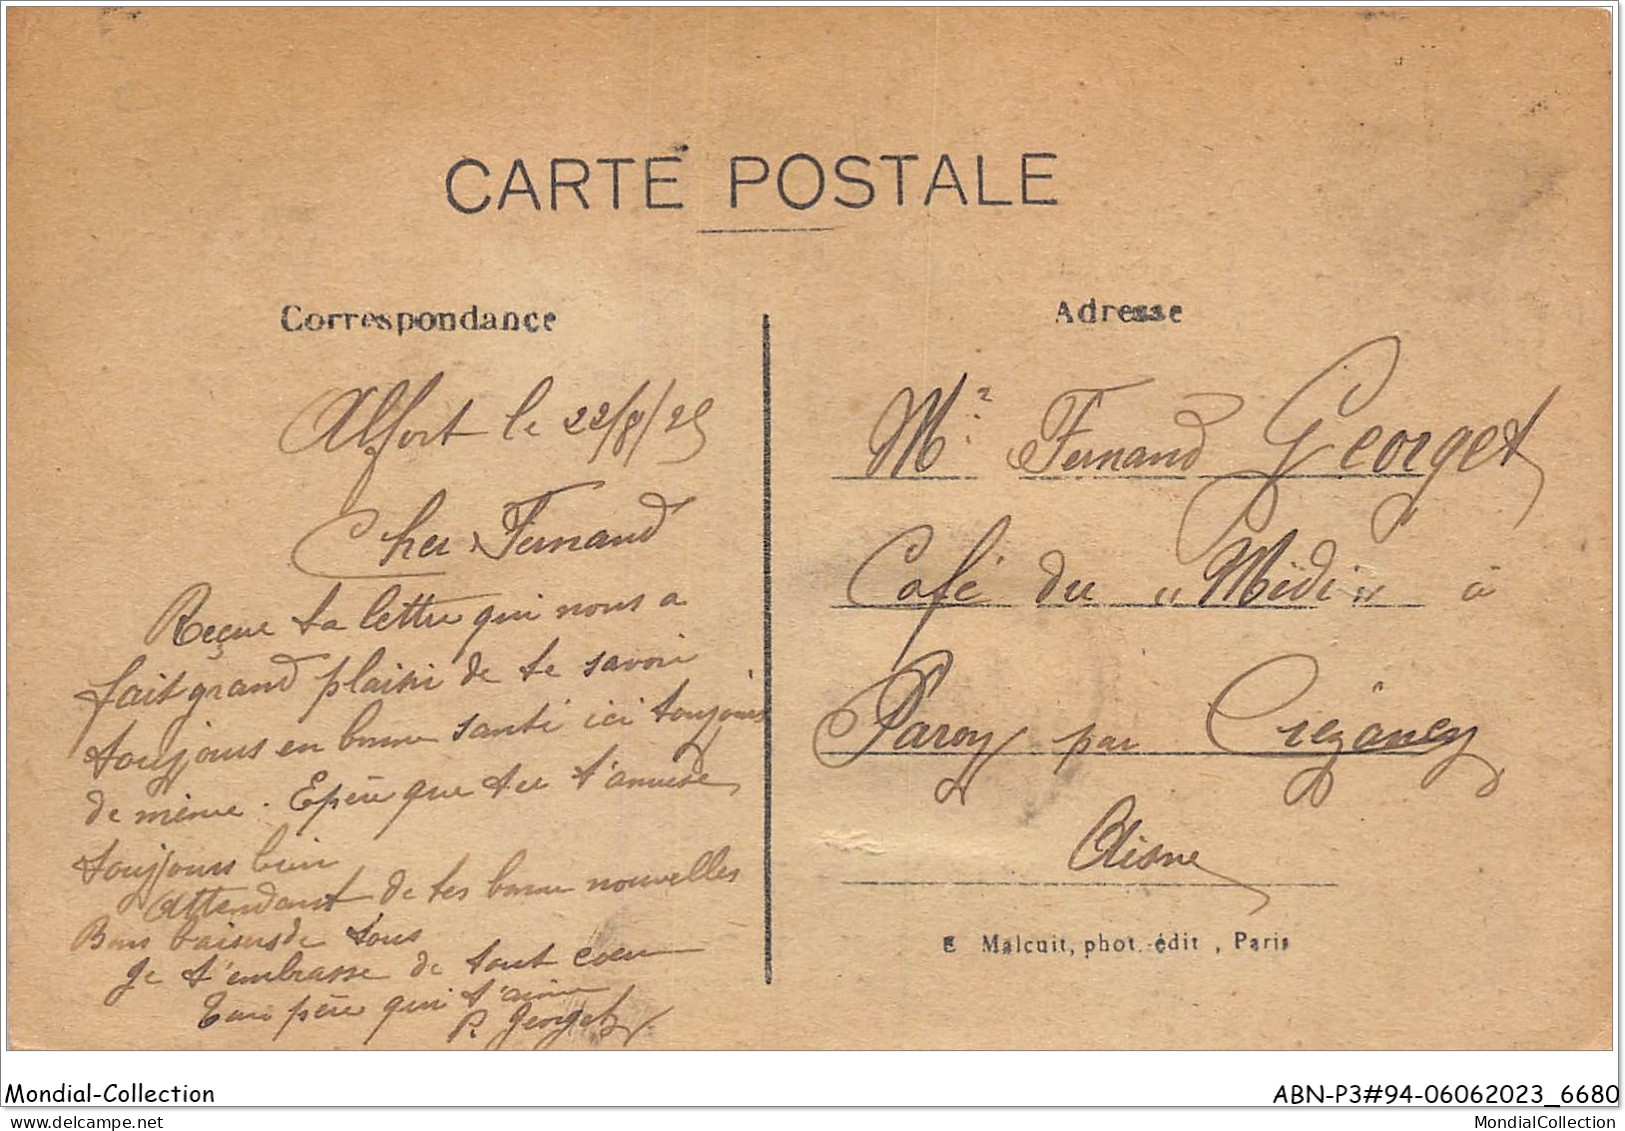 CARTE POSTALE
Correspondance
Alfort le 22/8/25
Cher Fernand
Reçue ta lettre qui nous a
fait grand plaisir de te savoir
toujours en bonne santé ici toujours
de même. Espère que tu t'amuse
toujours bien
Attendant de tes bonne nouvelles
Bons baisers de tous
Je t'embrasse de tout coeur
Ton père qui t'aime
P. Georget
Adresse
Mr Fernand Georget
Café du "Midi" à
Paroy par Crezancy
Aisne
E Malcuit, phot.-édit, Paris
Mondial-Collection
ABN-P3#94-06062023_6680
Mondial-Collection
MondialCollection